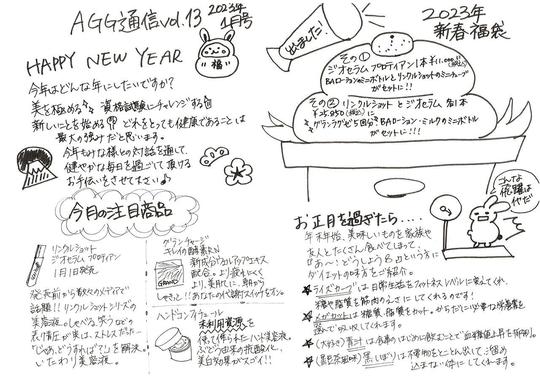 AGG通信vol.13
2023年
1月号
HAPPY NEW YEAR
福
今年はどんな年にしたいですか?
美を極める 資格試験にチャレンジする
新しいことを始める どれをとっても健康であることは
最大の強みだと思います。
今年もみな様との対話を通して、
健やかな毎日を過ごして頂ける
お手伝いをさせて下さい♪
今月の注目商品
リンクルショット
ジオセラム プロティアン
1月1日発売
発売前から数々のメディアで
話題!!リンクルショットシリーズの
美容液。しゃべる、笑うなどの
表情圧が実は、ストレスだった…
「じゃあ、どうすれば?」を解決。
いたわり美容液。
グランチャージ
キレイの酵素RN
新成分
配合。より疲れにくく
より、美肌に…朝から
あなたの代謝スイッチをオン。
ハンドコンフィチュール
未利用資源を
得て作られたハンド美容液。
ぶどう由来の抗酸化、
美白効果がスゴイ!!
出ました!
2023年
新春福袋
その①
ジオセラム プロティアン1本 ¥11,000(税込)
BAローションミニボトルとリンクルショットのミニチューブ
がセットに!!
その② リンクルショット と ジオセラム 各1本
BAローション・ミルクのミニボトル
がセットに!!!
お正月を過ぎたら....
年末年始、美味しいものを家族や
友人とたくさん食べてしまって、
「あ~どうしよう」という方に
ダイエットの味方をご紹介。
こんな
飛躍は
やだ
は日常生活をフィットネスレベルに変えてくれ、
糖や脂質を筋肉のエサにしてくれるのです!
メガカットは糖質、脂質をカット。からだに必要な栄養素を
選んで吸収してくれます。
(大好き)青汁は食事のはじめに飲むことで血糖値上昇を抑制。
は不要物をとことん出してご溜め
込まない体にしてくれます!